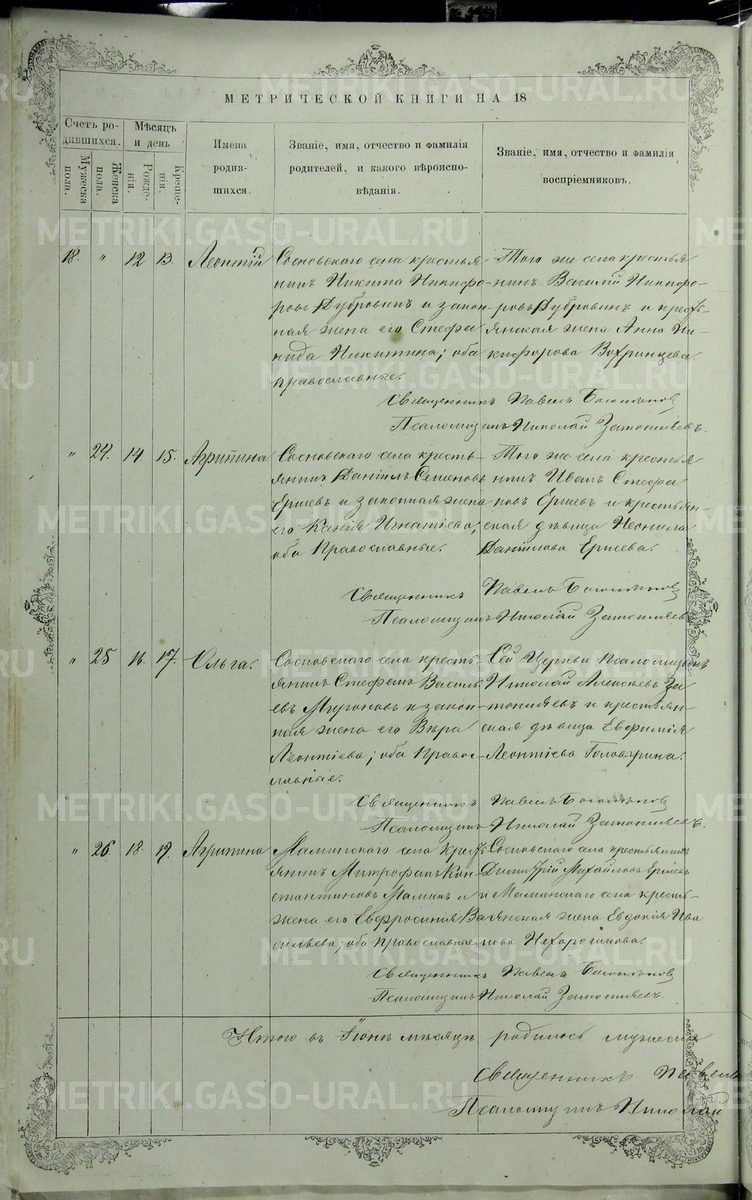 МЕТРИЧЕСКОЙ КНИГИ НА 18
Счетъ ро-
дившихся.
Мѣсяцъ
и день
Мужеска
пола.
Женска
пола.
Рожде-
нія.
Креще-
нія.
Имена
родив-
шихся.
Званіе, имя, отчество и фамилія
родителей, и какого вѣроиспо-
вѣданія.
Званіе, имя, отчество и фамилія
воспріемниковъ.
18. " 12 13. Леонтій
Сосновскаго села крестья-
нинъ Никита Никифо-
ровъ Дубровинъ и закон-
ная жена его Стефа-
нида Никитина; оба
православные.
Того же села крестья-
нинъ Василій Никифо-
ровъ Дубровинъ и кресть-
янская жена Анна Ни-
кифорова Вохринцева
Священникъ Павелъ
Псаломщикъ Николай
" 24. 14. 15. Агрипина
Сосновскаго села кресть-
янинъ Даніилъ Семеновъ
Ершевъ и законная жена
его Ксенія Игнатіева;
оба Православные.
Того же села крестья-
нинъ Иванъ Стефа-
новъ Ершевъ и крестьян-
ская дѣвица Неонила
Даніилова Ершева.
Священникъ Павелъ
Псаломщикъ Николай
" 25 16. 17. Ольга.
Сосновскаго села кресть-
янинъ Стефанъ Василь-
евъ Мироновъ и закон-
ная жена его Вѣра
Леонтіева; оба Правос-
лавные.
Сей Церкви Псаломщикъ
Николай Алексѣевъ
и крестьян-
ская дѣвица Евфимія
Леонтіева
Священникъ Павелъ
Псаломщикъ Николай
" 26. 18. 19. Агрипина
Маминскаго села крест-
янинъ Митрофанъ Кон-
стантиновъ Маминъ и
жена его Евфросинія Ва-
сильева; оба православные
Сосновскаго села крестьянинъ
Димитрій Михайловъ Ершевъ
и Маминскаго села кресть-
янская жена Евдокія Ива-
нова
Священникъ Павелъ
Псаломщикъ Николай
Итого въ Іюнѣ мѣсяцѣ родилось мужеска
Священникъ Павелъ
Псаломщикъ Николай
METRIKI.GASO-URAL.RU